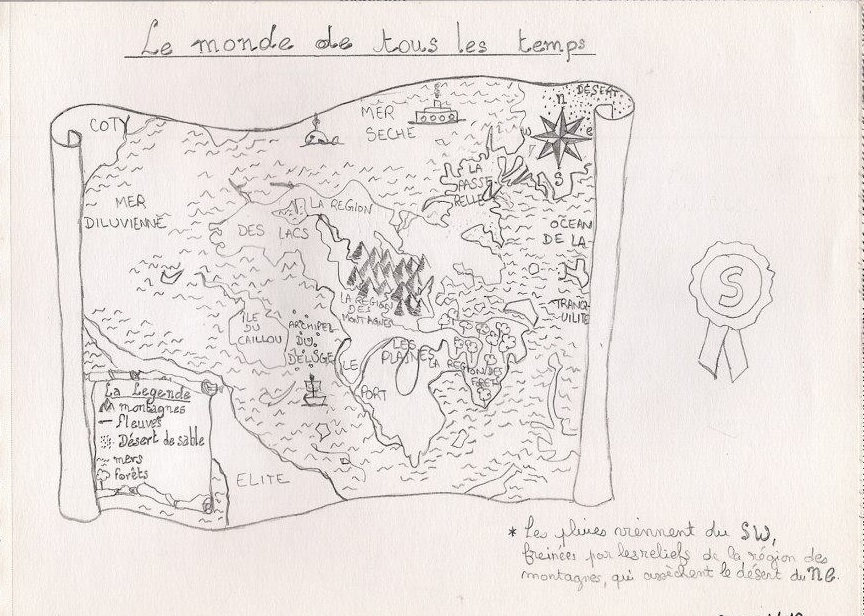 Le monde de tous les temps
COTY
MER
SECHE
DÉSERT
N
W
e
S
LA
PASSE
RELLE
MER
DILUVIENNE
LA REGION
DES LACS
OCEAN
DE LA
TRANQ-
UILITE
LA REGION
DES
MONTAGNES
ILE
DU
CAILLOU
ARCHIPEL
DU
DELUGE
LES
PLAINES
LA REGION DES
FORETS
LE
PORT
La Legende
montagnes
fleuves
Désert de sable
mers
forêts
ELITE
S
* Les pluies viennent du SW,
freinées par les reliefs de la région des
montagnes, qui assèchent le désert du NE.